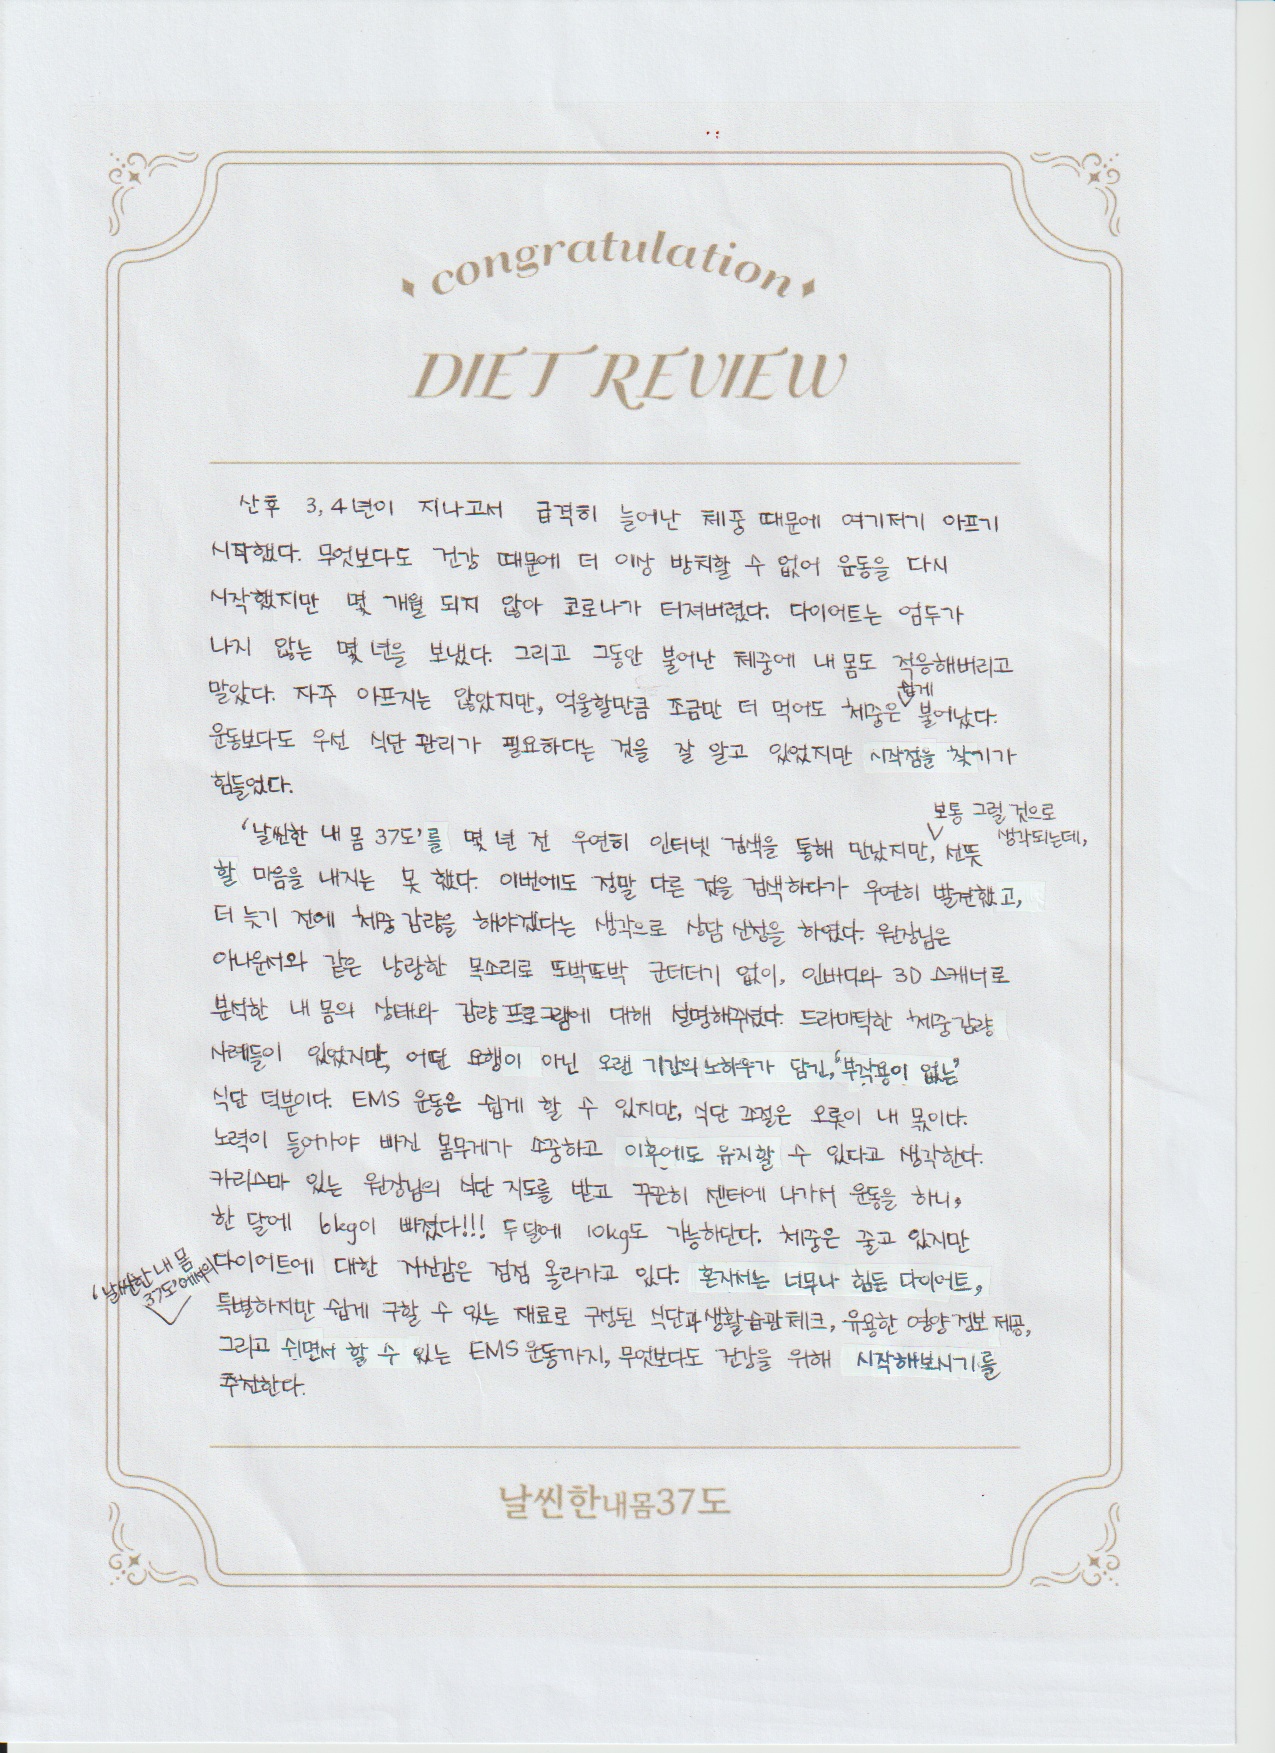 congratulation
DIET REVIEW
산후 3, 4년이 지나고서 급격히 늘어난 체중 때문에 여기저기 아프기
시작했다. 무엇보다도 건강 때문에 더 이상 방치할 수 없어 운동을 다시
시작했지만 몇 개월 되지 않아 코로나가 터져버렸다. 다이어트는 엄두가
나지 않는 몇 년을 보냈다. 그리고 그동안 불어난 체중에 내 몸도 적응해버리고
말았다. 자주 아프지는 않았지만, 억울할만큼 조금만 더 먹어도 체중은 쉽게 불어났다.
운동보다도 우선 식단 관리가 필요하다는 것을 잘 알고 있었지만 시작점을 찾기가
힘들었다.
'날씬한 내 몸 37도'를 몇 년 전 우연히 인터넷 검색을 통해 만났지만, 보통 그럴 것으로 생각되는데, 선뜻
할 마음을 내지는 못 했다. 이번에도 정말 다른 것을 검색하다가 우연히 발견했고,
더 늦기 전에 체중 감량을 해야겠다는 생각으로 상담 신청을 하였다. 원장님은
아나운서와 같은 낭랑한 목소리로 또박또박 군더더기 없이, 인바디와 3D 스캐너로
분석한 내 몸의 상태와 감량 프로그램에 대해 설명해주셨다. 드라마틱한 체중감량
사례들이 있었지만, 어떤 요행이 아닌 오랜 기간의 노하우가 담긴, '부작용이 없는'
식단 덕분이다. EMS 운동은 쉽게 할 수 있지만, 식단 조절은 오롯이 내 몫이다.
노력이 들어가야 빠진 몸무게가 소중하고 이후에도 유지할 수 있다고 생각한다.
카리스마 있는 원장님의 식단 지도를 받고 꾸준히 센터에 나가서 운동을 하니,
한 달에 6kg이 빠졌다!!! 두 달에 10kg도 가능하단다. 체중은 줄고 있지만
다이어트에 대한 자신감은 점점 올라가고 있다. 혼자서는 너무나 힘든 다이어트,
'날씬한 내 몸 37도'에서의
특별하지만 쉽게 구할 수 있는 재료로 구성된 식단과 생활습관 체크, 유용한 영양 정보 제공,
그리고 쉬면서 할 수 있는 EMS 운동까지, 무엇보다도 건강을 위해 시작해보시기를
추천한다.
날씬한내몸37도